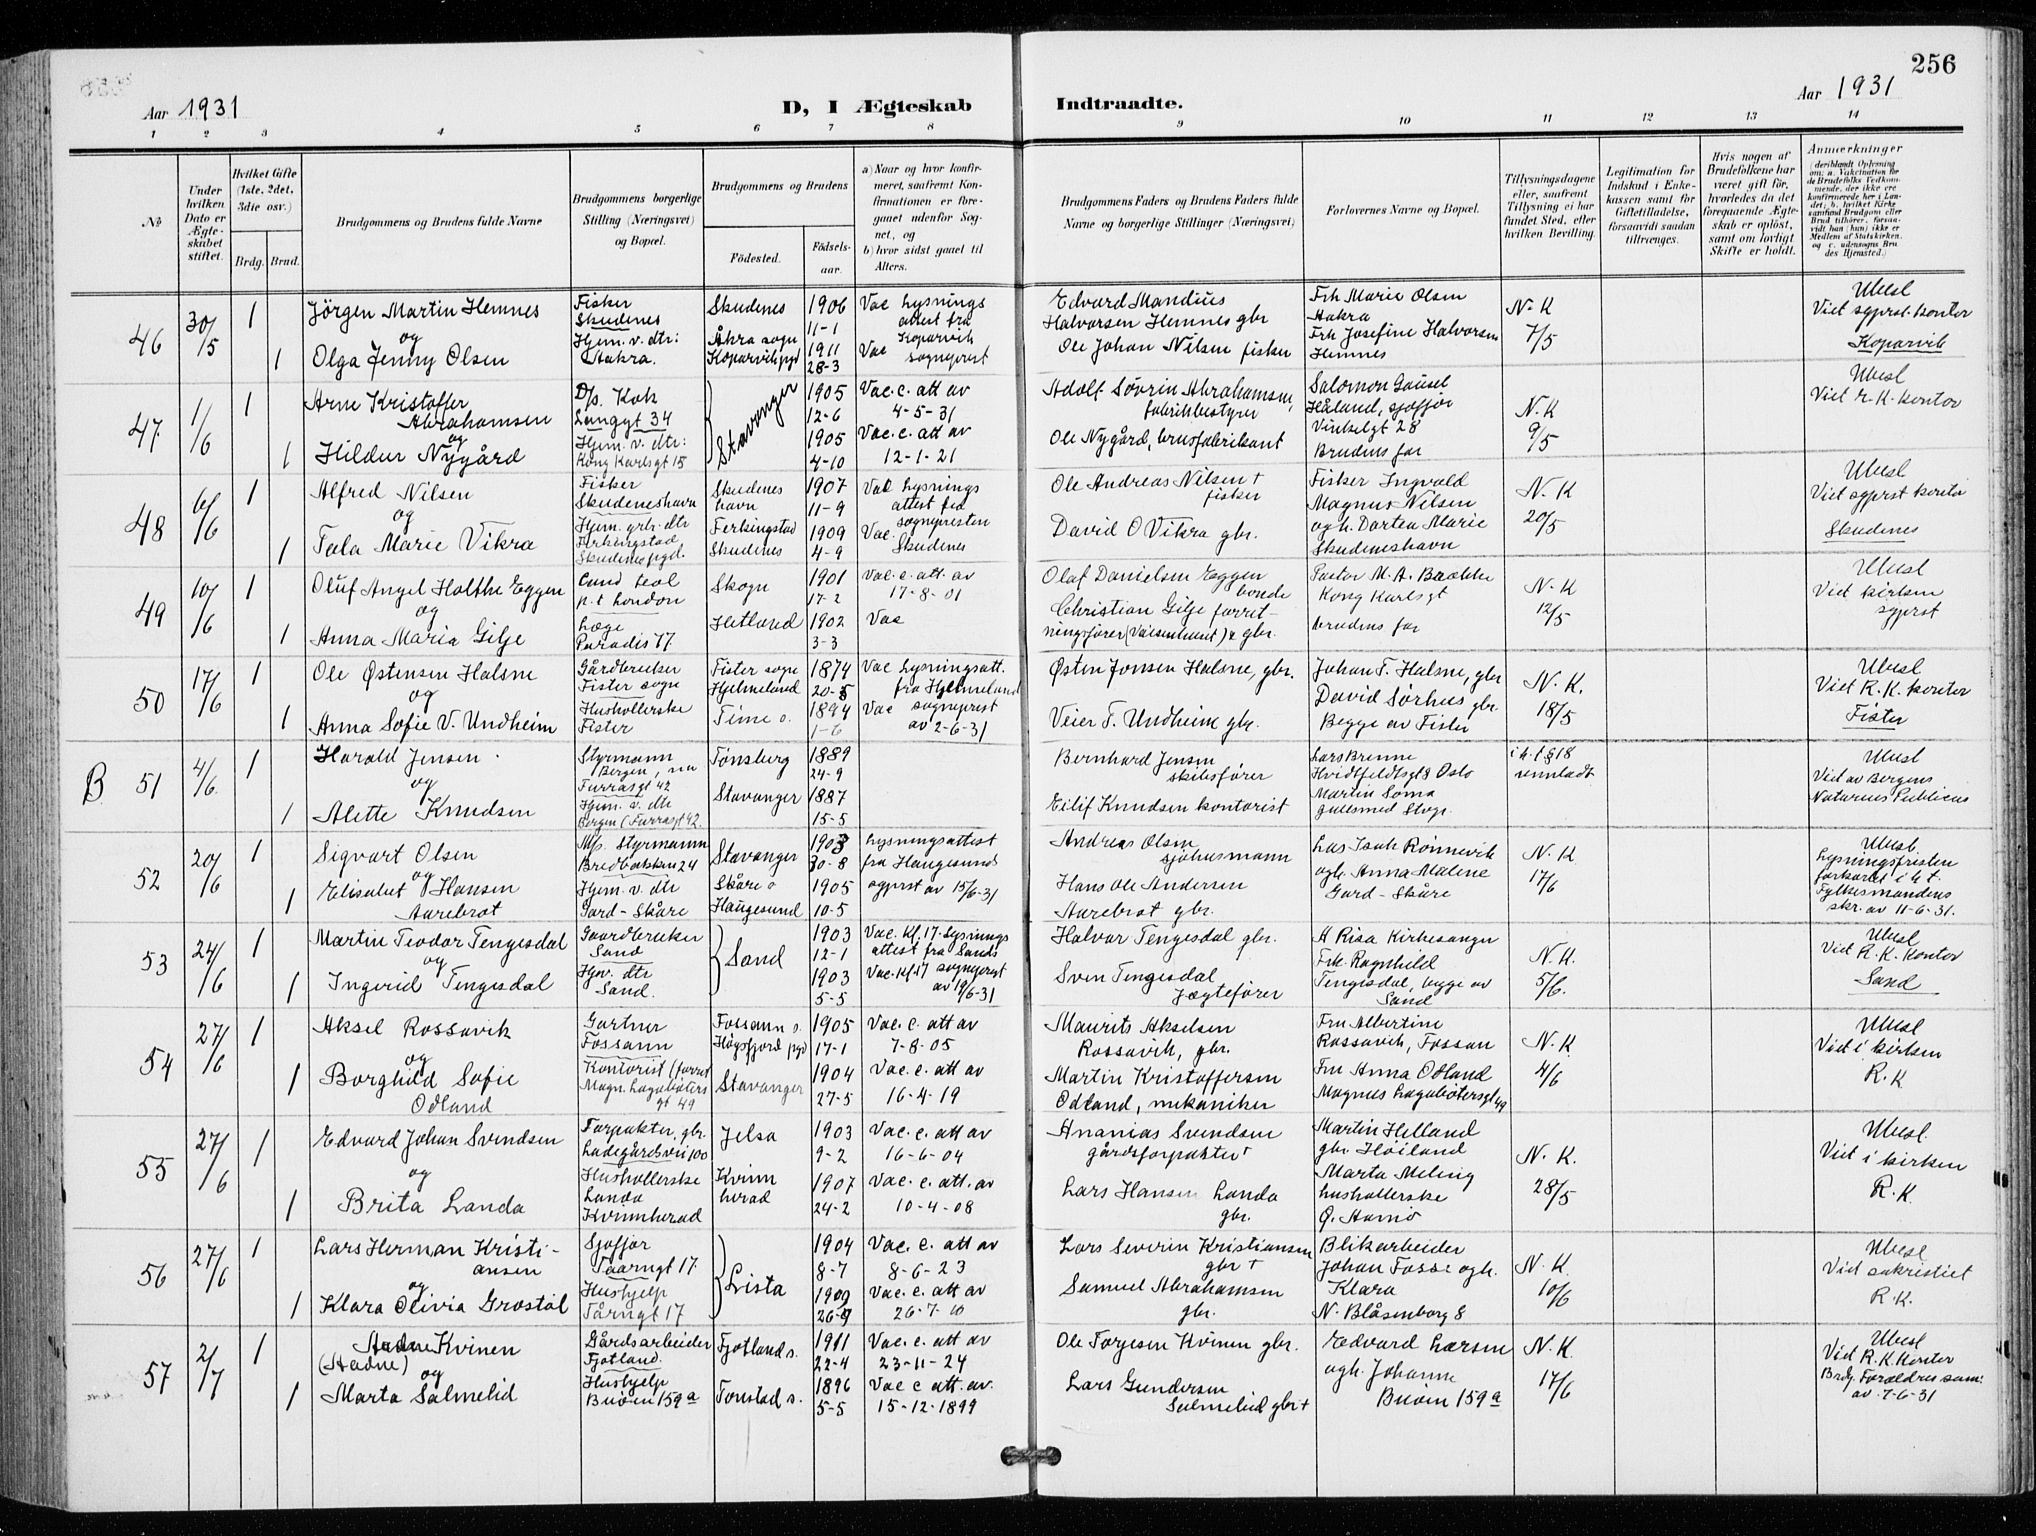 256
Aar 1931
D, I Ægteskab
Indtraadte.
Aar 1931
1 2 3 4 5 6 7 8 9 10 11 12 13 14
No
Under hvilken Dato er Ægteskabet stiftet.
Hvilket Gifte (1ste. 2det. 3die osv.)
Brdg. Brud.
Brudgommens og Brudens fulde Navne
Brudgommens borgerlige Stilling (Næringsvei) og Bopæl.
Brudgommens og Brudens
Födested.
Födselsaar.
a) Naar og hvor konfirmeret, saafremt Konfirmationen er foregaaet udenfor Sognet, og
b) hvor sidst gaaet til Alters.
Brudgommens Faders og Brudens Faders fulde Navne og borgerlige Stillinger (Næringsvei)
Forlovernes Navne og Bopæl.
Tillysningsdagene eller, saafremt Tillysning ei har fundet Sted, efter hvilken Bevilling.
Legitimation for Indskud i Enkekassen samt for Giftetilladelse, forsaavidt saadan tiltrænges.
Hvis nogen af Brudefolkene har været gift för, hvorledes da det foregaaende Ægteskab er oplöst, samt om lovligt Skifte er holdt.
Anmærkninger
(deriblandt Oplysning om: a. Vaccination for de Brudefolks Vedkommende, der ikke ere konfirmerede her i Landet; b. hvilket Kirkesamfund Brudgom eller Brud tilhörer, forsaavidt han (hun) ikke er Medlem af Statskirken, og c. udensogns Brudes Hjemsted.)
46 30/5 1 Jörgen Martin Hemnes
og
1 Olga Jenny Olsen
Fisker
Skudenes
Hjem. v. dtr:
Aakra.
Skudenes
Åkra sogn
Koparvik pgd
1906
11-1
1911
28-3
Vac lysnings
attest fra
Koparvik
Vac sogneprest
Edvard Mandius
Halvorsen Hemnes gbr
Ole Johan Nilsen fisker
Frk Marie Olsen
Aakra
Frk Josefine Halvorsen
Hemnes
N-K
7/5
Ubesl
Viet sgprst. kontor
Koparvik
47 1/6 1 Arne Kristoffer
Abrahamsen
og
1 Hildur Nygård
D/s. Kok
Langgt 34
Hjem. v. dtr:
Kong Karlsgt 15
Stavanger
1905
12-6
1905
4-10
Vac. c. att av
4-5-31
Vac. c. att av
12-1-21
Adolf Søvrin Abrahamsen,
fabrikbestyrer
Ole Nygård, brusfabrikant
Salomon Gausel
Håland, sjøfjør
Vinkelgt 28
Brudens far
N.K
9/5
Ubesl
Viet r.K. kontor
48 6/6 1 Alfred Nilsen
og
1 Tala Marie Vikra
Fisker
Skudeneshavn
Hjem. gbr. dtr
Ferkingstad
Skudenes pgd.
Skudenes
havn
Ferkingstad
Skudenes
1907
11-9
1909
4-9
Vac lysnings
attest fra
sognepresten
Vac. Skudenes
Ole Andreas Nilsen +
fisker
David O Vikra gbr.
Fisker Ingvald
Magnus Nilsen
og h. Dortea Marie
Skudeneshavn
N.K
20/5
Ubesl
Viet sgprst kontor
Skudenes
49 10/6 1 Oluf Angel Holthe Eggen
og
1 Anna Maria Gilje
Cand teol
p.t London
Læge
Paradis 17
Skogn
Hetland
1901
17-2
1902
3-3
Vac. c. att. av
17-8-01
Vac
Olaf Danielsen Eggen
bonde
Christian Gilje forretningsfører & gbr.
Pastor M. A. Brekke
Kong Karlsgt
brudens far
N-K
12/5
Ubesl
Viet kirken
sgprst
50 17/6 1 Ole Østensen Halsne
og
1 Anna Sofie V. Undheim
Gårdbruker
Fister sogn
Husholerske
Fister
Fister sogn
Hjelmeland
Time s.
1874
20-5
1894
1-6
Vac lysningsatt.
fra Hjelmeland
Vac sogneprest
av 2-6-31
Østen Jonsen Halsne, gbr.
Veier T. Undheim gbr.
Johan T. Halsne, gbr
David Sørhus gbr.
Begge av Fister
N.K.
18/5
Ubesl
Viet R.K. kontor
Fister
B 51 4/6. 1 Harald Jensen
og
1 Alette Knudsen
Styrmann
Bergen, nu
Furrasgt 42
Hjem. v. dtr
Bergen (Furrasgt 42.
Tønsberg
Stavanger
1889
24-9
1887
15-5
Bernhard Jensen
skibsfører
Eilif Knudsen kontorist
Lars Brenne
Hvidtfeldtsgt 8 Oslo
Martin Soma
gullsmed Stvgr.
i h. t § 18
unnlatdt
Ubesl
Viet av Bergens
Notarius Publicus
52 20/6 1 Sigvart Olsen
og
1 Elisabet Hansen
Aarebrot
M/s. Styrmann
Bredbakken 24
Hjem. v. dtr
Gard-Skåre
Stavanger
Skåre s
Haugesund
1903
30-8
1905
10-5
Lysningsattest
fra Haugesund
sgprst av 15/6-31
Andreas Olsen
sjøhusmann
Hans Ole Andersen
Aarebrot gbr.
Lars Isak Rönnevik
ogh. Anna Malene
Gard-Skåre
N.K
17/6
Ubesl.
Lysningsfristen
forkortet i h t.
Fylkesmandens
skr. av 11-6-31.
53 24/6 1 Martin Teodor Tengesdal
og
1 Ingerid Tengesdal
Gaardbruker
Sand
Hjv. dtr
Sand.
Sand
1903
12-1
1903
5-5
Vac. Kl. 17. Lysnings
attest fra Sands
Vac. Kl 17 sogneprest
av 19/6-31
Halvor Tengesdal gbr.
Sven Tengesdal
Jægtefører
H Risa Kirkesanger
Frk. Ragnhild
Tengesdal, begge av
Sand
N.K.
5/6.
Ubesl
Viet R.K. kontor
Sand
54 27/6 1 Aksel Rossavik
og
1 Borghild Sofie
Odland
Gartner
Fossann
Kontorist (forret
Magn. Lagabøters
gt 49
Fossann s.
Høgsfjord pgd
Stavanger
1905
17-1
1904
27-5
Vac. c. att av
7-8-05
Vac. c. att av
16-4-19
Maurits Akselsen
Rossavik, gbr.
Martin Kristoffersen
Odland, mekaniker
Fru Albertine
Rossavik, Fossan
Fru Anna Odland
Magnus Lagabøtersgt 49
N.K
4/6
Ubesl
Viet i kirken
R.K
55 27/6 1 Edvard Johan Svendsen
og
1 Brita Landa
Forpakter, gbr.
Ladegårdsvei 100
Husholerske
Landa
Kvinnherad
Jelsa
Kvinn
herad
1903
9-2
1907
24-2
Vac. c. att av
16-6-04
Vac. c. att. av
10-4-08
Ananias Svendsen
gårdsforpakter
Lars Hansen Landa
gbr.
Martin Helland
gbr Höiland
Marta Meling
husholerske
Ø. Aamö
N.K.
28/5
Ubesl.
Viet i kirken
R.K.
56 27/6 1 Lars Herman Kristi-
ansen
og
1 Klara Olivia Grøstøl
Sjøfjør
Taarngt 17.
Hushjelp
Tårngt 17
Lista
1904
8-7
1909
26-9
Vac. c. att av
8-6-23
Vac. c. att av
26-7-10
Lars Severin Kristiansen
gbr +
Samuel Abrahamsen
gbr.
Blikarbeider
Johan Fosse ogh.
Klara
N. Blåsenborg 8
N.K
10/6
Ubesl
Viet sakristiet
R.K.
57 2/7 1 Aadne Kvinen
(Aadne)
og
1 Marta Salmelid
Gårdsarbeider
Fjotland.
Hushjelp
Buöen 159a
Fjotland s.
Tonstad s.
1911
22-4
1896
5-5
Vac. c. att av
23-11-24
Vac c att. av.
15-12-1899
Ole Torjesen Kvinen gbr.
Lars Gundersen
Salmelid gbr +
Edvard Larsen
ogh. Johanne
Buöen 159a
N.K.
17/6
Ubesl
Viet R.K. Kontor
Brdg. Forældres sam:
av 7-6-31